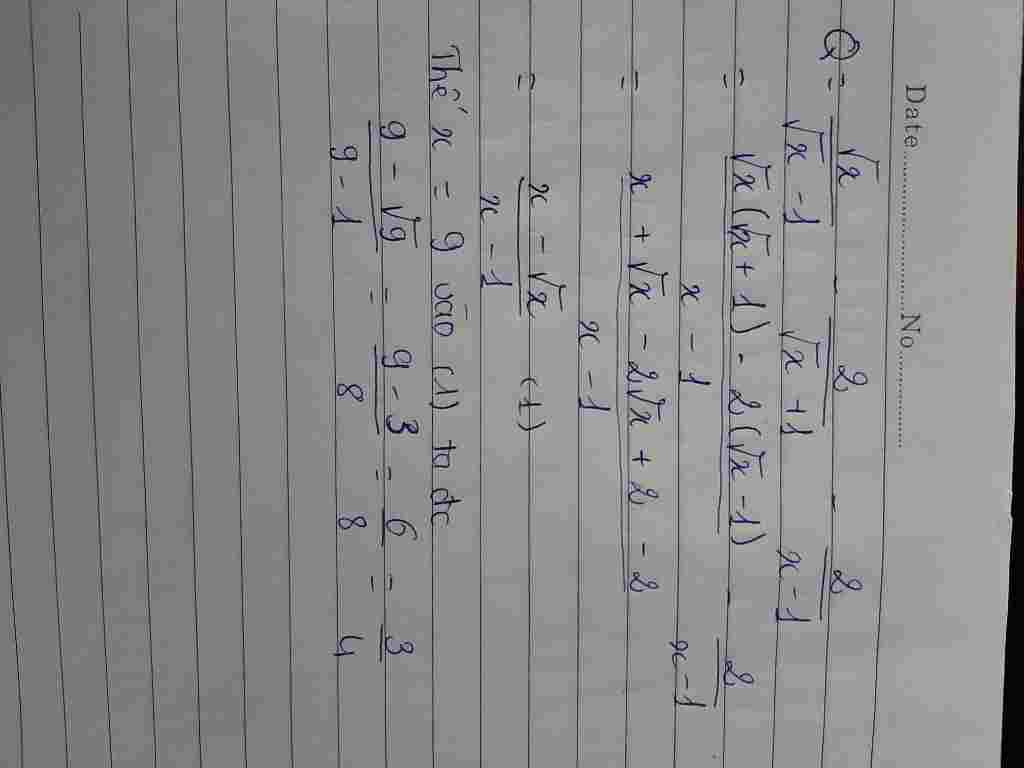 Date...............No...........
Q = √x/(√x - 1) - 2/(√x + 1) - 2/(x - 1)
= (√x(√x + 1) - 2(√x - 1))/(x - 1) - 2/(x - 1)
= (x + √x - 2√x + 2 - 2)/(x - 1)
= (x - √x)/(x - 1) (1)
Thế x = 9 vào (1) ta đc
(9 - √9)/(9 - 1) = (9 - 3)/8 = 6/8 = 3/4